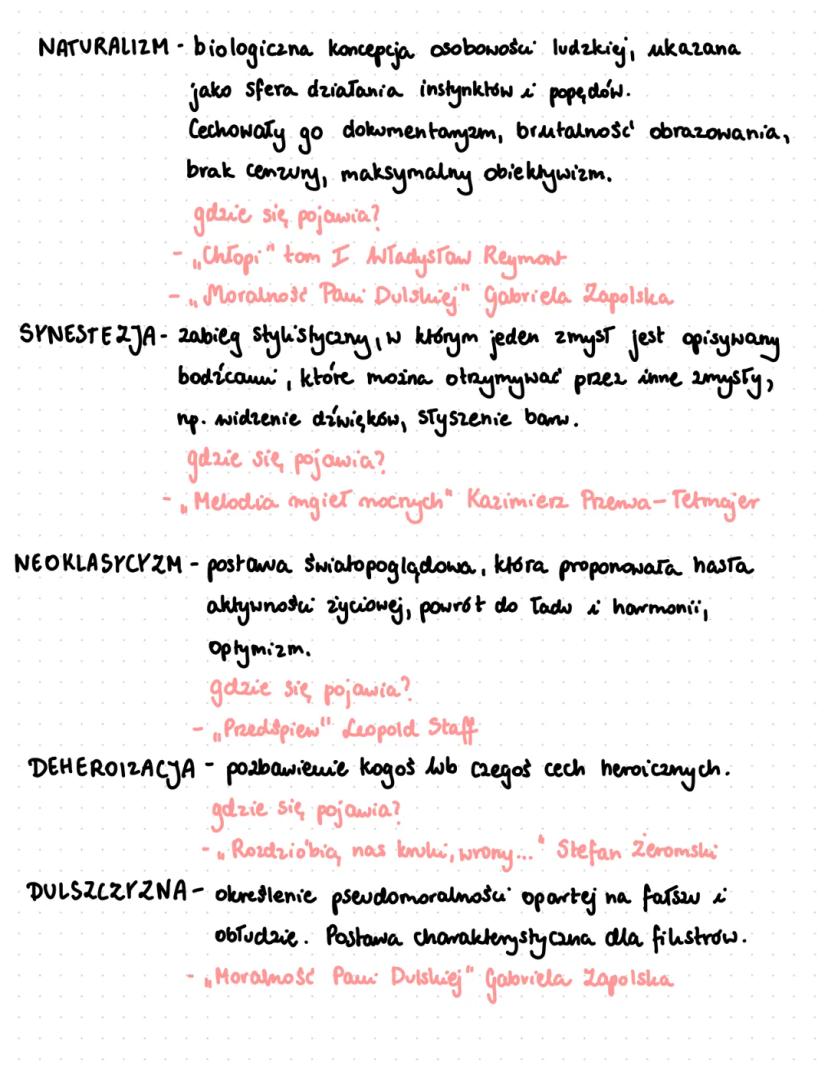 NATURALIZM - biologiczna koncepcja osobowości ludzkiej, ukazana
jako sfera działania instynktów i popędów.
Cechowały go dokumentaryzm, brutalność obrazowania,
brak cenzury, maksymalny obiektywizm.
gdzie się pojawia?
- „Chłopi" tom I Władysław Reymont
- „Moralność Pani Dulskiej" Gabriela Zapolska
SYNESTEZJA - zabieg stylistyczny, w którym jeden zmysł jest opisywany
bodźcami, które można otrzymywać przez inne zmysły,
np. widzenie dźwięków, słyszenie barw.
gdzie się pojawia?
- „Melodia mgieł nocnych" Kazimierz Przerwa-Tetmajer
NEOKLASYCYZM - postawa światopoglądowa, która proponowała hasła
aktywności życiowej, powrót do ładu i harmonii,
optymizm.
gdzie się pojawia?
- „Przedśpiew" Leopold Staff
DEHEROIZACJA - pozbawienie kogoś lub czegoś cech heroicznych.
gdzie się pojawia?
- „Rozdziobią nas kruki, wrony..." Stefan Żeromski
DULSZCZYZNA - określenie pseudomoralności opartej na fałszu i
obłudzie. Postawa charakterystyczna dla filistrów.
- „Moralność Pani Dulskiej" Gabriela Zapolska